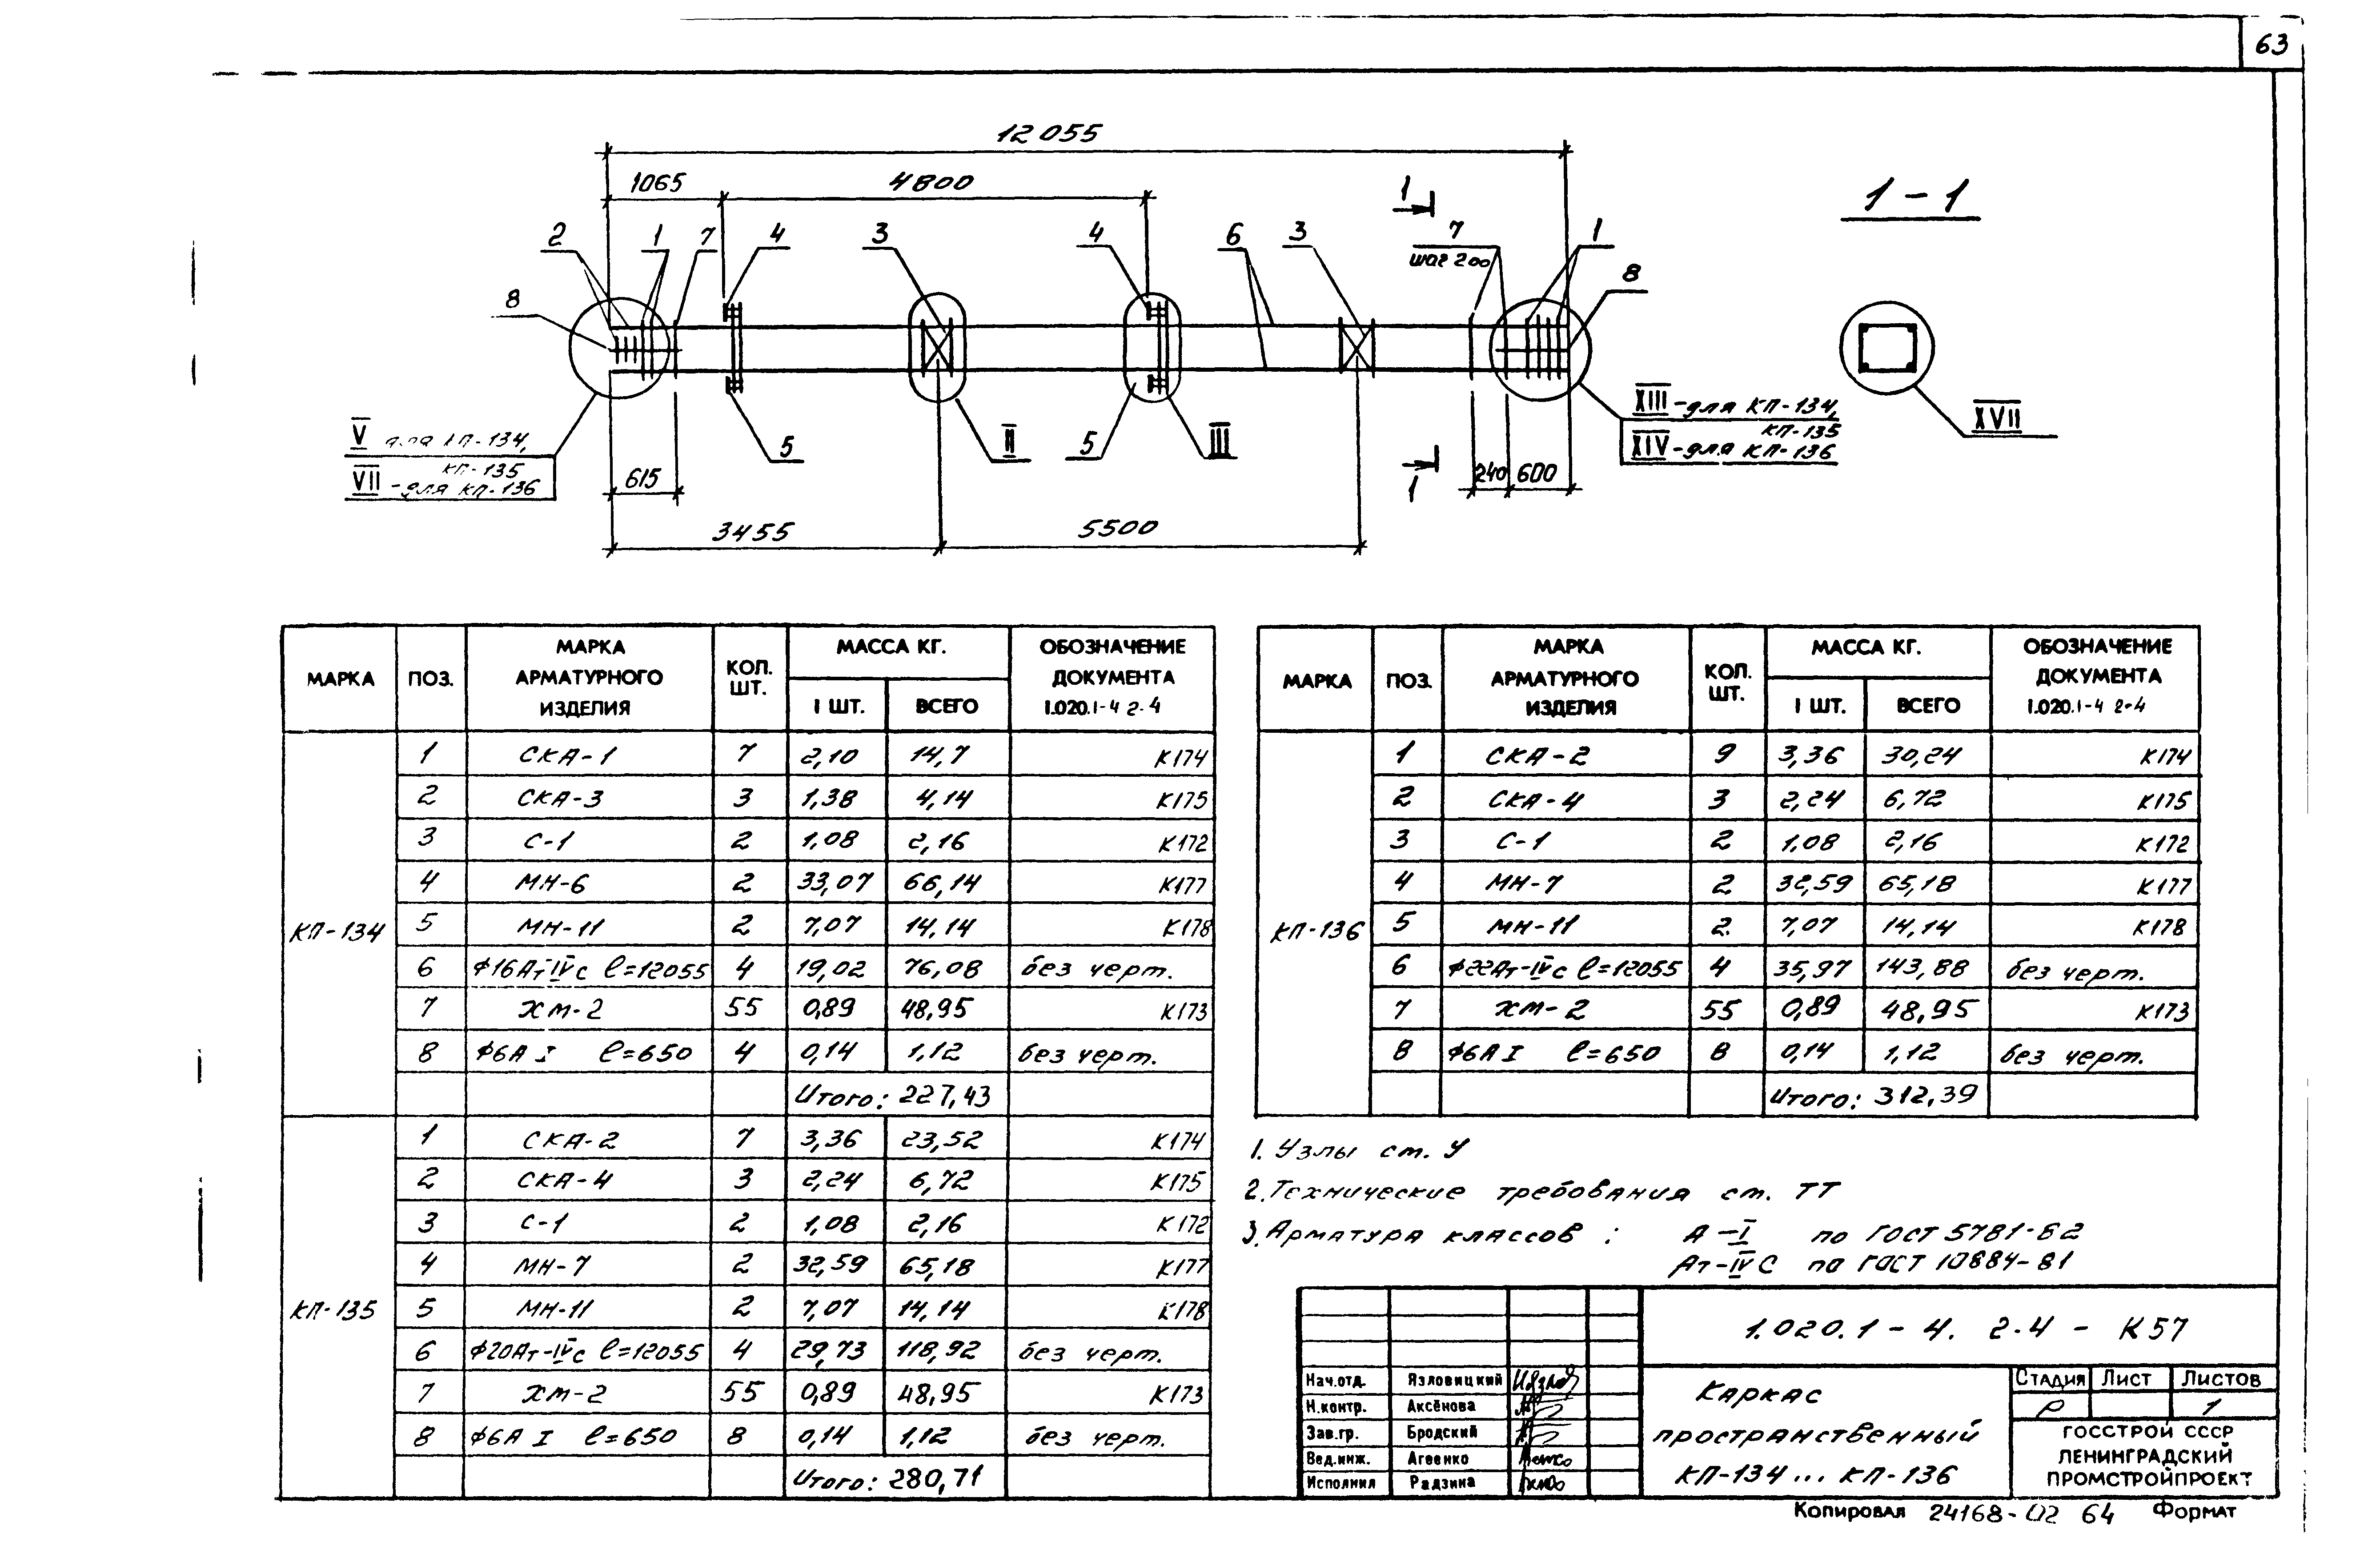 63
12 055
1065
4800
1
1-1
2
1
7
4
3
4
6
3
7
шаг 200
1
8
8
V для КП-134,
КП-135
VII - для КП-136
5
II
5
III
XIII - для КП-134,
КП-135
XIV - для КП-136
XVII
615
240
600
1
3455
5500
МАРКА ПОЗ. МАРКА АРМАТУРНОГО ИЗДЕЛИЯ КОЛ. ШТ. МАССА КГ. 1 ШТ. ВСЕГО ОБОЗНАЧЕНИЕ ДОКУМЕНТА 1.020.1-4 2-4
КП-134
1 СКА-1 7 2,10 14,7 К174
2 СКА-3 3 1,38 4,14 К175
3 С-1 2 1,08 2,16 К172
4 МН-6 2 33,07 66,14 К177
5 МН-11 2 7,07 14,14 К178
6 ф16Ат-IVс ℓ=12055 4 19,02 76,08 без черт.
7 ХМ-2 55 0,89 48,95 К173
8 ф6А I ℓ=650 4 0,14 1,12 без черт.
Итого: 227,43
КП-135
1 СКА-2 7 3,36 23,52 К174
2 СКА-4 3 2,24 6,72 К175
3 С-1 2 1,08 2,16 К172
4 МН-7 2 32,59 65,18 К177
5 МН-11 2 7,07 14,14 К178
6 ф20Ат-IVс ℓ=12055 4 29,73 118,92 без черт.
7 ХМ-2 55 0,89 48,95 К173
8 ф6А I ℓ=650 8 0,14 1,12 без черт.
Итого: 280,71
МАРКА ПОЗ. МАРКА АРМАТУРНОГО ИЗДЕЛИЯ КОЛ. ШТ. МАССА КГ. 1 ШТ. ВСЕГО ОБОЗНАЧЕНИЕ ДОКУМЕНТА 1.020.1-4 2-4
КП-136
1 СКА-2 9 3,36 30,24 К174
2 СКА-4 3 2,24 6,72 К175
3 С-1 2 1,08 2,16 К172
4 МН-7 2 32,59 65,18 К177
5 МН-11 2 7,07 14,14 К178
6 ф22Ат-IVс ℓ=12055 4 35,97 143,88 без черт.
7 ХМ-2 55 0,89 48,95 К173
8 ф6А I ℓ=650 8 0,14 1,12 без черт.
Итого: 312,39
1. Узлы см. У
2. Технические требования см. ТТ
3. Арматура классов: А-I по ГОСТ 5781-82
Ат-IVС по ГОСТ 10884-81
1.020.1-4. 2-4 - К57
Нач.отд. Язловицкий
Н.контр. Аксёнова
Зав.гр. Бродский
Вед.инж. Агеенко
Исполнил Радзина
Каркас
пространственный
КП-134...КП-136
Стадия Лист Листов
Р 1
ГОССТРОЙ СССР
ЛЕНИНГРАДСКИЙ
ПРОМСТРОЙПРОЕКТ
Копировал 24168-02 64 Формат